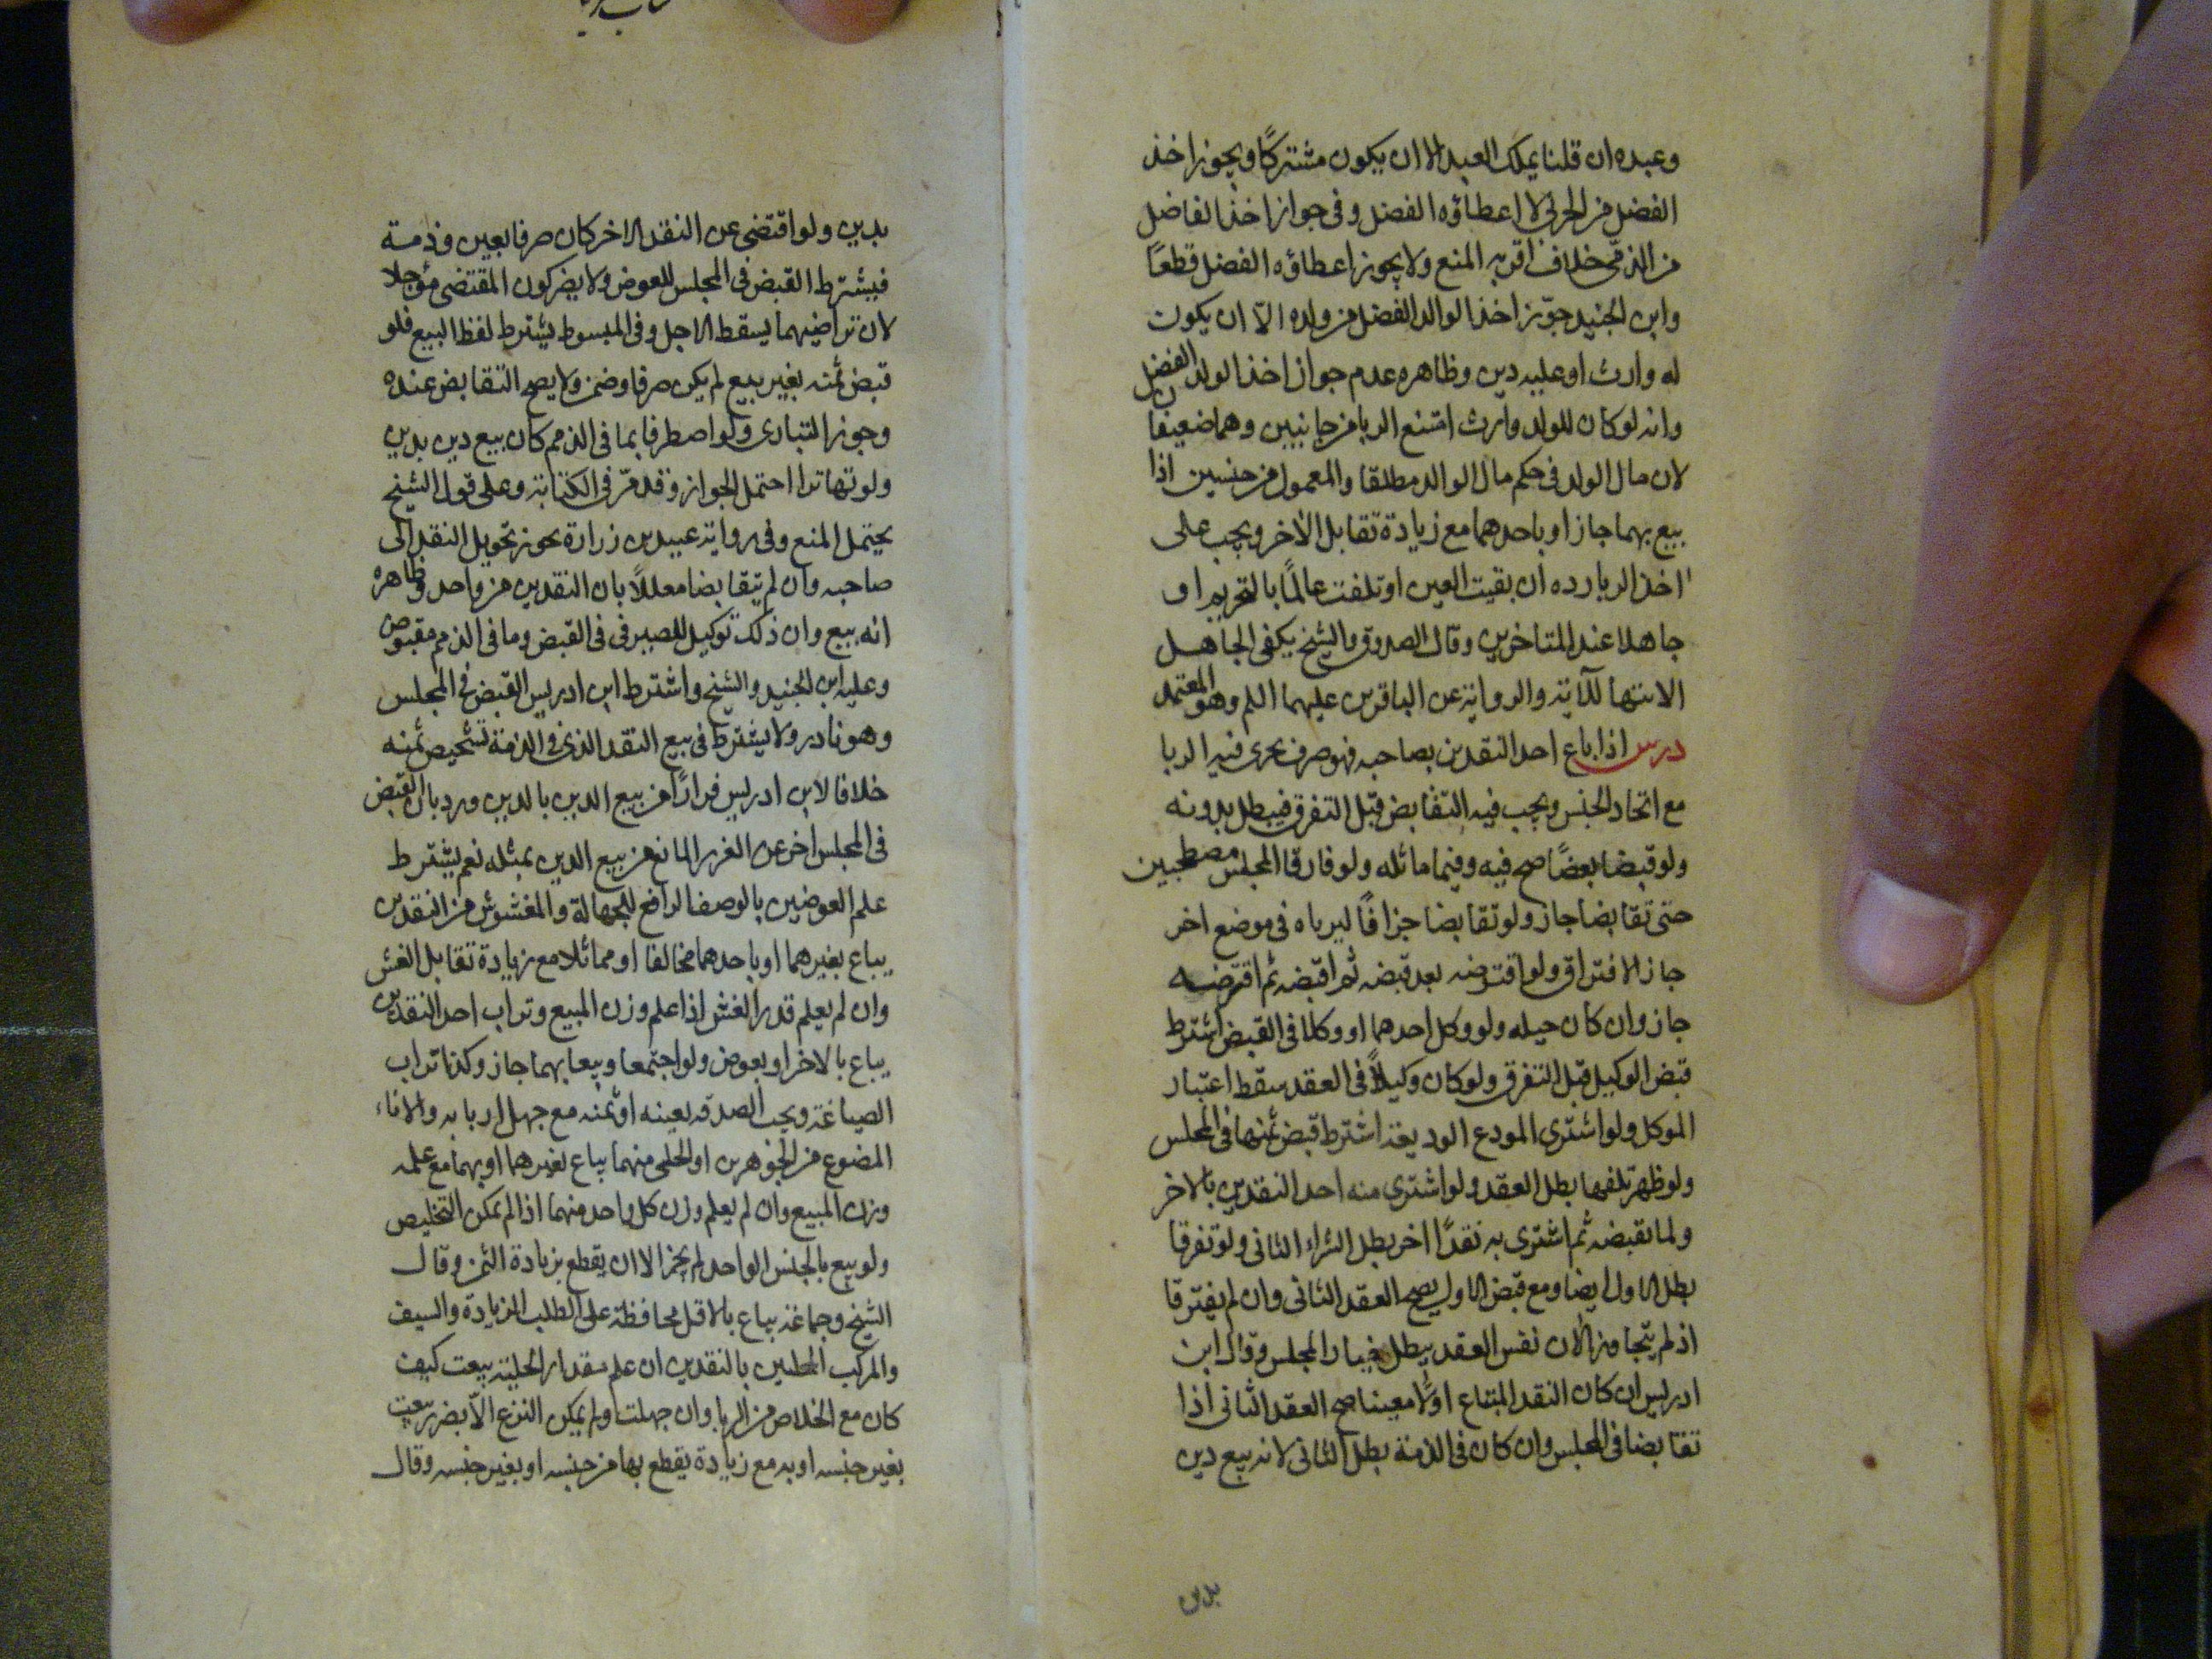 وعبده ان قلنا يملك العبد الا ان يكون مشتركًا ويجوز اخذ
الفضل من الحربي لا اعطاؤه الفضل وفى جواز اخذ الفاضل
من الذمي خلاف اقربه المنع ولا يجوز اعطاؤه الفضل قطعًا
وابن الجنيد جوّز اخذ الوالد الفضل من ولده الّا ان يكون
له وارث او عليه دين وظاهره عدم جواز اخذ الولد الفضل
وانه لو كان للولد وارث امتنع الربا من جانبين وهما ضعيفان
لان مال الولد فى حكم مال الوالد مطلقا والمعمول من جنسين اذا
بيع بهما جاز او باحدهما مع زيادة تقابل الاخر ويجب على
اخذ الربا رده ان بقيت العين او تلفت عالمًا بالتحريم او
جاهلا عند المتاخرين وقال الصدوق والشيخ يكفى الجاهل
الانتها للآية والرواية عن الباقرين عليهما السلم وهو المعتمد
درس اذا باع احد النقدين بصاحبه فهو صرف يجرى فيه الربا
مع اتحاد الجنس ويجب فيه التقابض قبل التفرق فيبطل بدونه
ولو قبضا بعضًا صح فيه وفيما ماثله ولو فارقا المجلس مصطحبين
حتى تقابضا جاز ولو تقابضا جزافًا ليرباه فى موضع اخر
جاز الافتراق ولو اقترضه بعد قبضه ثم اقبضه ثم اقترضه
جاز وان كان حيله ولو وكل احدهما او وكلا فى القبض اشترط
قبض الوكيل قبل التفرق ولو كان وكيلًا فى العقد سقط اعتبار
الموكل ولو اشترى المودع الوديعة اشترط قبض ثمنها فى المجلس
ولو ظهر تلفها بطل العقد ولو اشترى منه احد النقدين بالاخر
ولما يقبضه ثم اشترى به نقدًا اخر بطل الشراء الثانى ولو تفرقا
بطل الاول ايضا ومع قبض الاول يصح العقد الثانى وان لم يفترقا
اذ لم يتجاوز الان نفس العقد يبطل خيار المجلس وقال ابن
ادريس ان كان النقد المبتاع اولًا معينا صح العقد الثانى اذا
تقابضا فى المجلس وان كان فى الذمة بطل الثانى لانه بيع دين
بدين
بدين ولو اقتضى عن النقد الاخر كان صرفا بعين وذمة
فيشترط القبض فى المجلس للعوض ولا يضر كون المقتضى مؤجلا
لان تراضيهما يسقط الاجل وفى المبسوط يشترط لفظ البيع فلو
قبض ثمنه بغير بيع لم يكن صرفا وضمن ولا يصح التقابض عنده
وجوز التبارى ولو اصطرفا بما فى الذمم كان بيع دين بدين
ولو تهاترا احتمل الجواز وقد مرّ فى الكتابة وعلى قول الشيخ
يحتمل المنع وفى رواية عبيد بن زرارة يجوز تحويل النقد الى
صاحبه وان لم يتقابضا معللًا بان النقدين من واحد وظاهره
انه بيع وان ذلك توكيل للصيرفى فى القبض وما فى الذمم مقبوض
وعليه ابن الجنيد والشيخ واشترط ابن ادريس القبض فى المجلس
وهو نادر ولا يشترط فى بيع النقد الذى فى الذمة تشخيص ثمنه
خلافا لابن ادريس فرارًا من بيع الدين بالدين ورد بان القبض
فى المجلس اخرجه عن الغرر المانع من بيع الدين بمثله نعم يشترط
علم العوضين بالوصف الرافع للجهالة والمغشوش من النقدين
يباع بغيرهما او باحدهما مخالفا او مماثلا مع زيادة تقابل الغش
وان لم يعلم قدر الغش اذا علم وزن المبيع وتراب احد النقدين
يباع بالاخر او بعوض ولو اجتمعا وبيعا بهما جاز وكذا تراب
الصياغة ويجب الصدقة بعينه او ثمنه مع جهل اربابه والاناء
المصوغ من الجوهرين او الحلى منهما يباع بغيرهما او بهما مع علمه
وزن المبيع وان لم يعلم وزن كل واحد منهما اذا لم يمكن التخليص
ولو بيع بالجنس الواحد لم يجز الا ان يقطع بزيادة الثمن وقال
الشيخ وجماعة يباع بالاقل محافظة على طلب الزيادة والسيف
والمركب المحليين بالنقدين ان علم مقدار الحلية بيعت كيف
كان مع الخلاص من الربا وان جهلت ولم يمكن النزع الّا بضرر بيعت
بغير جنسه او به مع زيادة يقطع بها من جنسه او بغير جنسه وقال